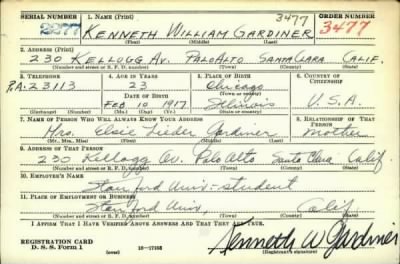 SERIAL NUMBER 1. NAME (Print) 3477 ORDER NUMBER
2277 KENNETH WILLIAM GARDINER 3477
(First) (Middle) (Last)
2. ADDRESS (Print)
230 KELLOGG AV. PALO ALTO SANTA CLARA CALIF.
(Number and street or R. F. D. number) (Town) (County) (State)
3. TELEPHONE 4. AGE IN YEARS 5. PLACE OF BIRTH 6. COUNTRY OF CITIZENSHIP
P.A. 23113 23 Chicago
DATE OF BIRTH (Town or county)
FEB 10 1917 Illinois U.S.A.
(Exchange) (Number) (Mo.) (Day) (Yr.) (State or country)
7. NAME OF PERSON WHO WILL ALWAYS KNOW YOUR ADDRESS 8. RELATIONSHIP OF THAT PERSON
Mrs. Elsie Fieder Gardiner mother
(Mr., Mrs., Miss) (First) (Middle) (Last)
9. ADDRESS OF THAT PERSON
230 Kellogg Av. Palo Alto Santa Clara Calif.
(Number and street or R. F. D. number) (Town) (County) (State)
10. EMPLOYER'S NAME
Stanford Univ. - student
11. PLACE OF EMPLOYMENT OR BUSINESS
Stanford Univ. Calif
(Number and street or R. F. D. number) (Town) (County) (State)
I AFFIRM THAT I HAVE VERIFIED ABOVE ANSWERS AND THAT THEY ARE TRUE.
REGISTRATION CARD
D. S. S. Form 1 (over) 16-17105 Kenneth W Gardiner
(Registrant's signature)